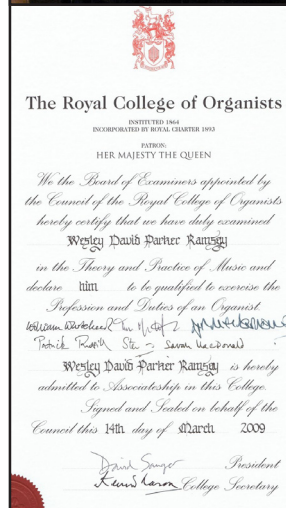 The Royal College of Organists
INSTITUTED 1864
INCORPORATED BY ROYAL CHARTER 1893
PATRON:
HER MAJESTY THE QUEEN
We the Board of Examiners appointed by
the Council of the Royal College of Organists
hereby certify that we have duly examined
Wesley David Parker Ramsay
in the Theory and Practice of Music and
declare him to be qualified to exercise the
Profession and Duties of an Organist.
Patrick Russill Sarah MacDonald
Wesley David Parker Ramsay is hereby
admitted to Associateship in this College
Signed and Sealed on behalf of the
Council this 14th day of March 2009
David Sanger President
College Secretary